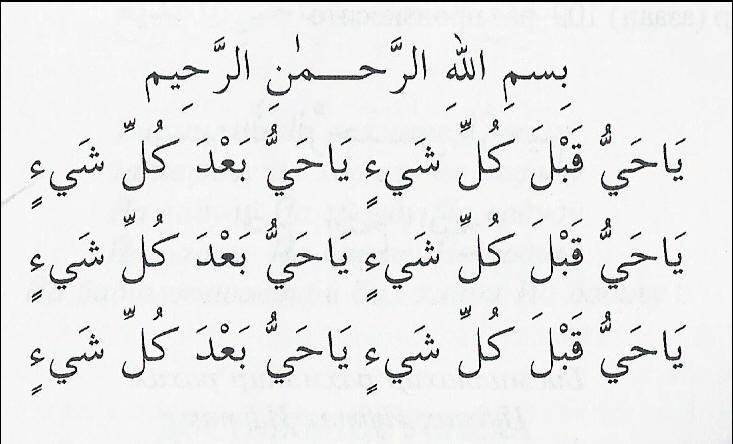 بِسمِ اللهِ الرَّحـــمٰنِ الرَّحِيم
يَاحَيُّ قَبْلَ كُلِّ شَيءٍ يَاحَيُّ بَعْدَ كُلِّ شَيءٍ
يَاحَيُّ قَبْلَ كُلِّ شَيءٍ يَاحَيُّ بَعْدَ كُلِّ شَيءٍ
يَاحَيُّ قَبْلَ كُلِّ شَيءٍ يَاحَيُّ بَعْدَ كُلِّ شَيءٍ